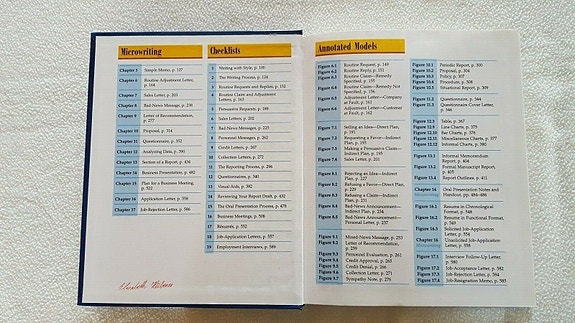 Microwriting
Chapter 5 Simple Memo, p. 127
Chapter 6 Routine Adjustment
Letter, p. 164
Chapter 7 Sales Letter, p. 203
Chapter 8 Bad-News Memo, p. 238
Chapter 9 Letter of Recommendation,
p. 277
Chapter 10 Proposal, p. 314
Chapter 11 Questionnaire, p. 352
Chapter 12 Analyzing Data, p. 391
Chapter 13 Section of a Report, p. 434
Chapter 14 Business Presentation, p. 482
Chapter 15 Plan for a Business Meeting,
p. 522
Chapter 16 Application Letter, p. 558
Chapter 17 Job-Rejection Letter, p. 586
Checklists
1 Writing with Style, p. 101
2 The Writing Process, p. 124
3 Routine Requests and Replies, p. 152
4 Routine Claim and Adjustment
Letters, p. 163
5 Persuasive Requests, p. 188
6 Sales Letters, p. 202
7 Bad-News Messages, p. 225
8 Personnel Messages, p. 262
9 Credit Letters, p. 267
10 Collection Letters, p. 272
11 The Reporting Process, p. 296
12 Questionnaires, p. 341
13 Visual Aids, p. 382
14 Reviewing Your Report Draft, p. 432
15 The Oral Presentation Process, p. 478
16 Business Meetings, p. 508
17 Résumés, p. 552
18 Job-Application Letters, p. 557
19 Employment Interviews, p. 589
Annotated Models
Figure 6.1 Routine Request, p. 149
Figure 6.2 Routine Reply, p. 151
Figure 6.3 Routine Claim—Remedy
Specified, p. 156
Figure 6.4 Routine Claim—Remedy Not
Specified, p. 158
Figure 6.5 Adjustment Letter—Company
at Fault, p. 161
Figure 6.6 Adjustment Letter—Customer
at Fault, p. 162
Figure 7.1 Selling an Idea—Direct Plan,
p. 191
Figure 7.2 Requesting a Favor—Indirect
Plan, p. 193
Figure 7.3 Making a Persuasive Claim—
Indirect Plan, p. 195
Figure 7.4 Sales Letter, p. 201
Figure 8.1 Rejecting an Idea—Indirect
Plan, p. 227
Figure 8.2 Refusing a Favor—Direct Plan,
p. 229
Figure 8.3 Refusing a Claim—Indirect
Plan, p. 231
Figure 8.4 Bad-News Announcement—
Indirect Plan, p. 234
Figure 8.5 Bad-News Announcement—
Personal Letter, p. 237
Figure 9.1 Mixed-News Message, p. 253
Figure 9.2 Letter of Recommendation,
p. 259
Figure 9.3 Personnel Evaluation, p. 261
Figure 9.4 Credit Approval, p. 265
Figure 9.5 Credit Denial, p. 266
Figure 9.6 Collection Letter, p. 271
Figure 9.7 Sympathy Note, p. 276
Figure 10.1 Periodic Report, p. 300
Figure 10.2 Proposal, p. 304
Figure 10.3 Policy, p. 307
Figure 10.4 Procedure, p. 308
Figure 10.5 Situational Report, p. 309
Figure 11.2 Questionnaire, p. 344
Figure 11.3 Questionnaire Cover Letter,
p. 346
Figure 12.3 Table, p. 367
Figure 12.5 Line Charts, p. 375
Figure 12.6 Bar Charts, p. 376
Figure 12.11 Miscellaneous Charts, p. 377
Figure 12.12 Informal Charts, p. 380
Figure 13.1 Informal Memorandum
Report, p. 404
Figure 13.2 Formal Manuscript Report,
p. 405
Figure 13.4 Report Outlines, p. 411
Chapter 14 Oral Presentation Notes and
Handout, pp. 484–486
Figure 16.1 Résumé in Chronological
Format, p. 548
Figure 16.2 Résumé in Functional Format,
p. 549
Figure 16.3 Solicited Job-Application
Letter, p. 554
Chapter 16 Unsolicited Job-Application
Letter, p. 558
Figure 17.1 Interview Follow-Up Letter,
p. 580
Figure 17.2 Job-Acceptance Letter, p. 582
Figure 17.3 Job-Rejection Letter, p. 584
Figure 17.4 Job-Resignation Memo, p. 593